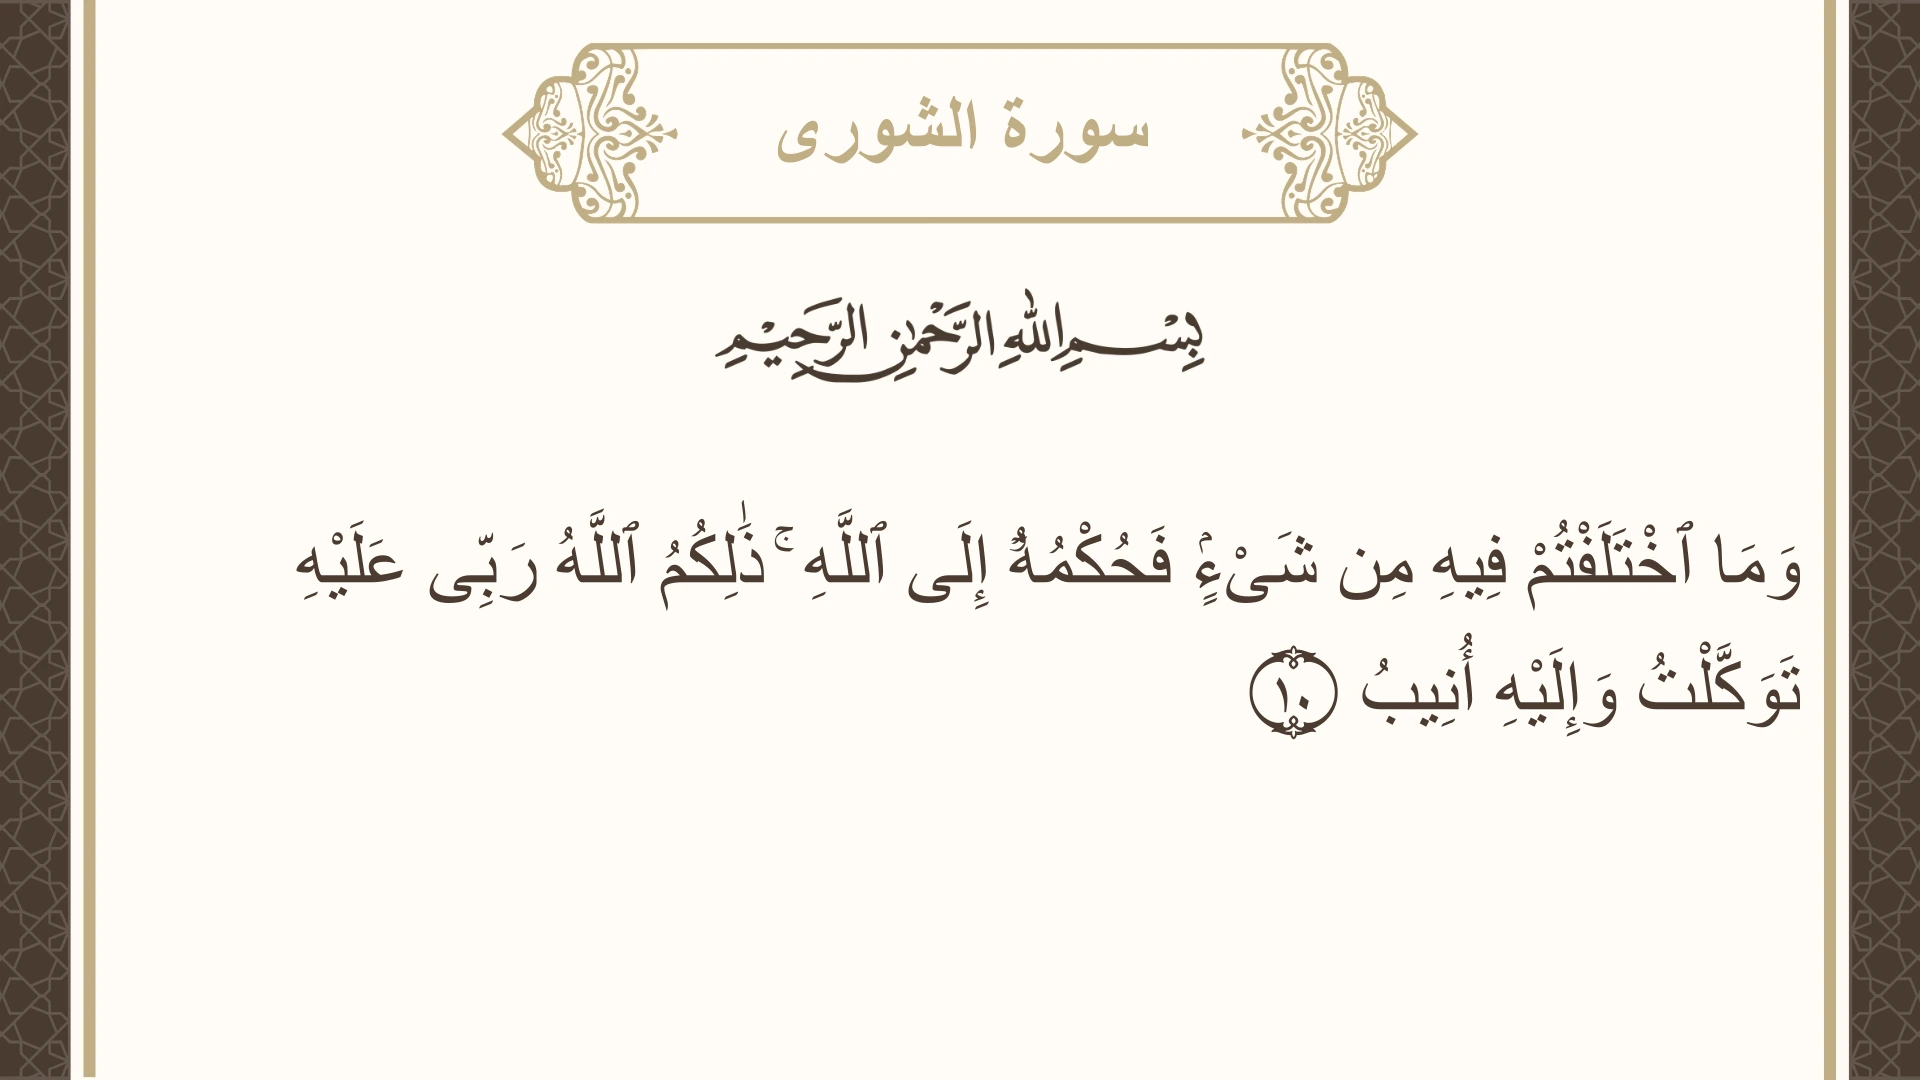 سورة الشورى
بِسْمِ اللهِ الرَّحْمٰنِ الرَّحِيْمِ
وَمَا ٱخْتَلَفْتُمْ فِيهِ مِن شَىْءٍۢ فَحُكْمُهُۥٓ إِلَى ٱللَّهِ ۚ ذَٰلِكُمُ ٱللَّهُ رَبِّى عَلَيْهِ
تَوَكَّلْتُ وَإِلَيْهِ أُنِيبُ ١٠